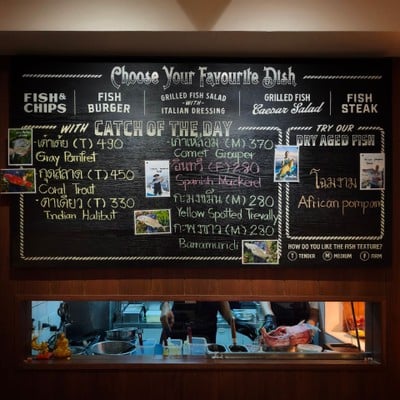 Choose Your Favourite Dish
FISH & CHIPS
FISH BURGER
GRILLED FISH SALAD
-WITH-
ITALIAN DRESSING
GRILLED FISH
Caesar Salad
FISH STEAK
WITH CATCH OF THE DAY
(T) 490
Gray Pomfret
กุดสลาด (T) 450
Coral Trout
-ตาเดียว (T) 330
Indian Halibut
(M) 370
Comet Grouper
อินทรี (F) 280
Spanish Mackerel
(M) 280
Yellow Spotted Trevally
กะพงขาว (M) 280
Barramundi
TRY OUR
DRY AGED FISH
โฉมงาม
African pompano
HOW DO YOU LIKE THE FISH TEXTURE?
T TENDER M MEDIUM F FIRM